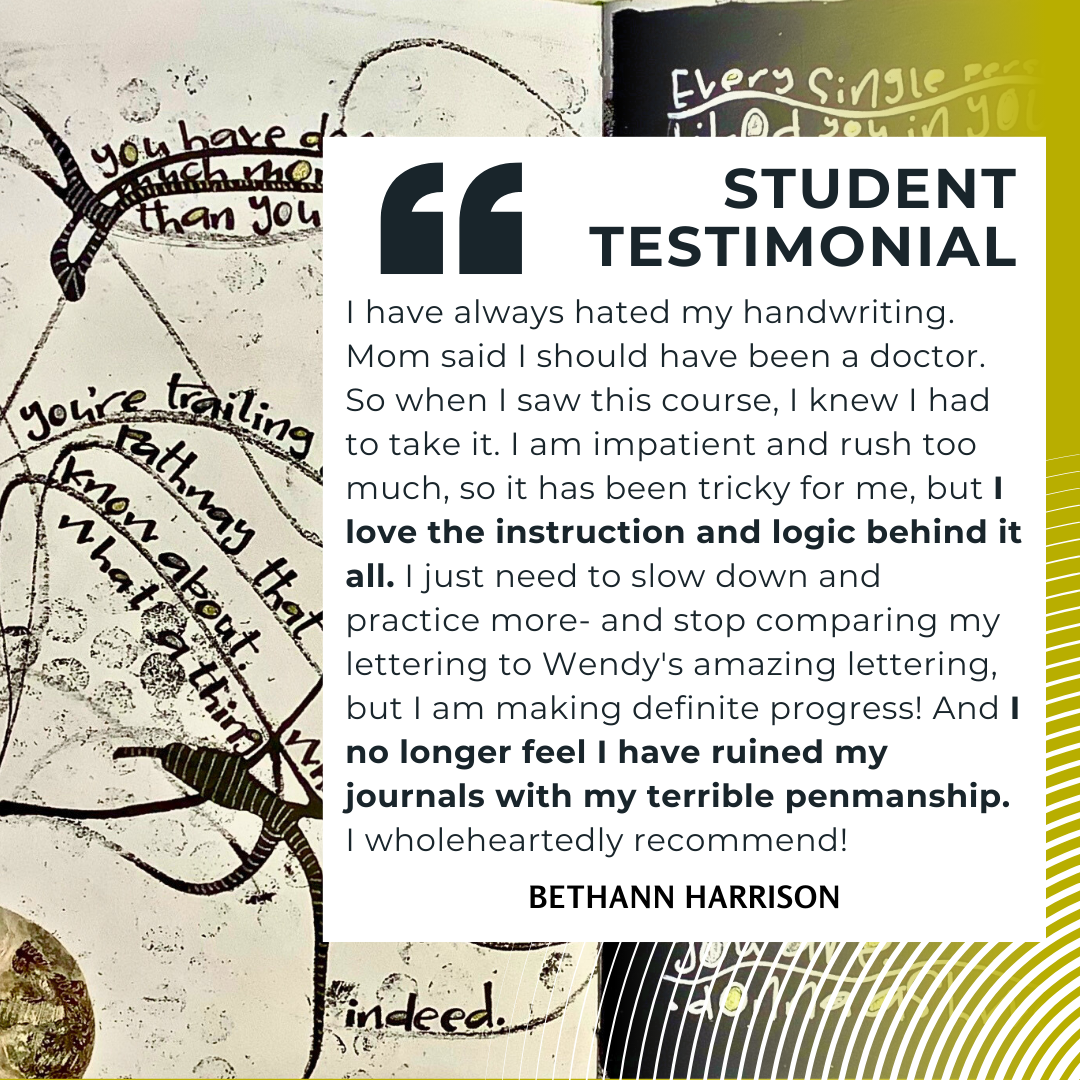 you have
much
than you
you're trailing
pathway that
know about.
what a thing
indeed.
Every Single
you in
“
STUDENT
TESTIMONIAL
I have always hated my handwriting.
Mom said I should have been a doctor.
So when I saw this course, I knew I had
to take it. I am impatient and rush too
much, so it has been tricky for me, but I
love the instruction and logic behind it
all. I just need to slow down and
practice more- and stop comparing my
lettering to Wendy's amazing lettering,
but I am making definite progress! And I
no longer feel I have ruined my
journals with my terrible penmanship.
I wholeheartedly recommend!
BETHANN HARRISON